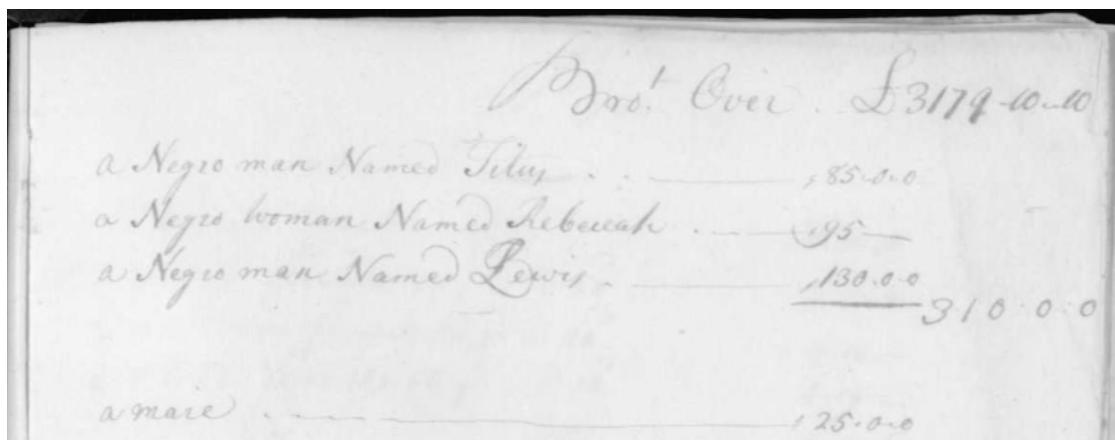 Bro.t Over . £3179-10-10
a Negro man Named Titus . . 85.0.0
a Negro woman Named Rebeccah . 95
a Negro man Named Lewis . 130.0.0
310.0.0
a mare 25.0.0